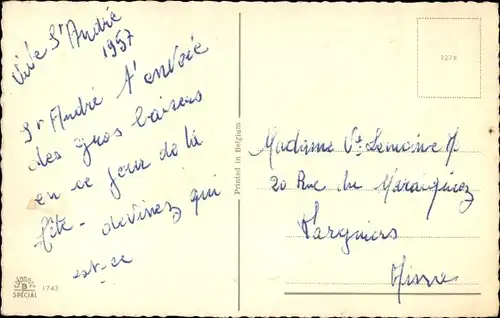 Vive St André
1957
St André t'envoie
des gros baisers
en ce jour de la
fête - devinez qui
est-ce
SPECIAL
1743
Printed in Belgium
1279
Madame Ve Lemoine
20 Rue du
Farguiers
Aisne